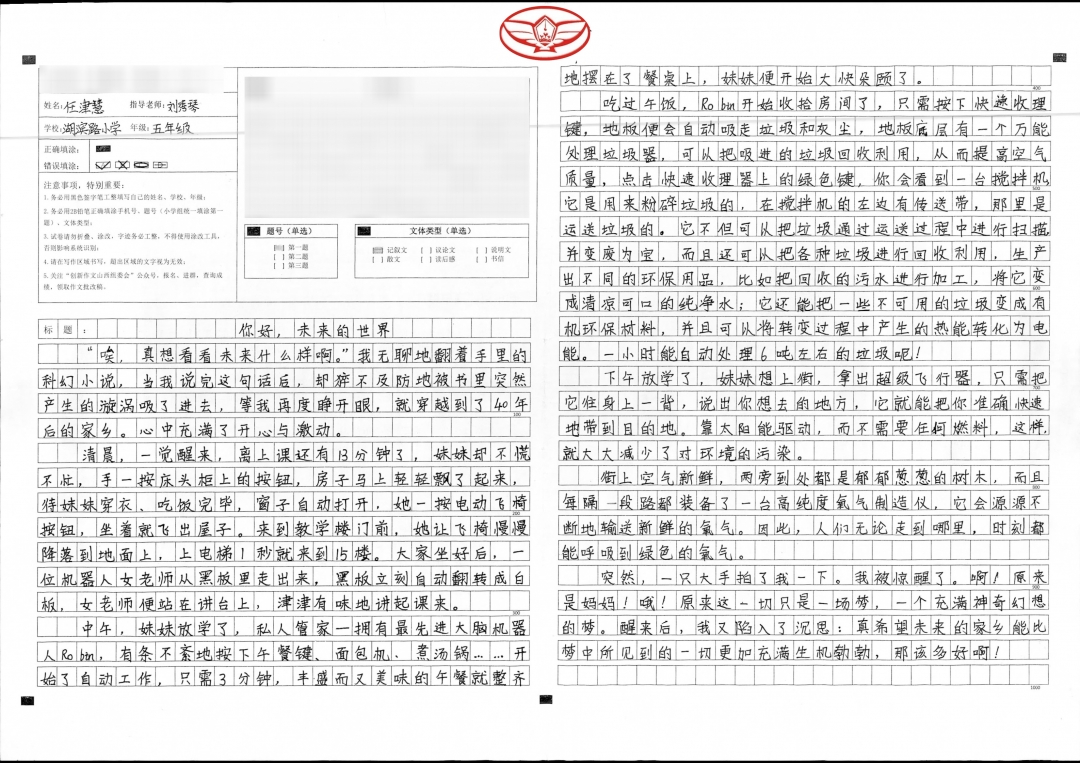 姓名：任津慧 指导老师：刘秀琴
学校：湖滨路小学 年级：五年级
正确填涂：
错误填涂：
注意事项，特别重要：
1.务必用黑色签字笔工整填写自己的姓名、学校、年级；
2.务必用2B铅笔正确填涂手机号、题号（小学组统一填涂第一
题）、文体类型；
3.试卷请勿折叠、涂改，字迹务必工整，不得使用涂改工具，
否则影响系统识别；
4.请在写作区域书写，超出区域的文字视为无效；
5.关注“创新作文山西组委会”公众号，报名、进群、查询成
绩、领取作文批改稿。
题号（单选）
第一题
[ ] 第二题
[ ] 第三题
文体类型（单选）
记叙文 [ ] 议论文 [ ] 说明文
[ ] 散文 [ ] 读后感 [ ] 书信
标题： 你好，未来的世界
“唉，真想看看未来什么样啊。”我无聊地翻着手里的
科幻小说，当我说完这句话后，却猝不及防地被书里突然
产生的漩涡吸了进去，等我再度睁开眼，就穿越到了40年
100
后的家乡。心中充满了开心与激动。
清晨，一觉醒来，离上课还有13分钟了，妹妹却不慌
不忙，手一按床头柜上的按钮，房子马上轻轻飘了起来，
待妹妹穿衣、吃饭完毕，窗子自动打开，她一按电动飞椅
200
按钮，坐着就飞出屋子。来到教学楼门前，她让飞椅慢慢
降落到地面上，上电梯1秒就来到15楼。大家坐好后，一
位机器人女老师从黑板里走出来，黑板立刻自动翻转成白
板，女老师便站在讲台上，津津有味地讲起课来。
300
中午，妹妹放学了，私人管家一拥有最先进大脑机器
人Robin，有条不紊地按下午餐键、面包机、煮汤锅……开
始了自动工作，只需3分钟，丰盛而又美味的午餐就整齐
地摆在了餐桌上，妹妹便开始大快朵颐了。
400
吃过午饭，Robin开始收拾房间了，只需按下快速收理
键，地板便会自动吸走垃圾和灰尘，地板底层有一个万能
处理垃圾器，可以把吸进的垃圾回收利用，从而提高空气
质量，点击快速收理器上的绿色键，你会看到一台搅拌机
500
它是用来粉碎垃圾的，在搅拌机的左边有传送带，那里是
运送垃圾的。它不但可以把垃圾通过运送过程中进行扫描
并变废为宝，而且还可以把各种垃圾进行回收利用，生产
出不同的环保用品，比如把回收的污水进行加工，将它变
600
成清凉可口的纯净水；它还能把一些不可用的垃圾变成有
机环保材料，并且可以将转变过程中产生的热能转化为电
能。一小时能自动处理6吨左右的垃圾呢！
700
下午放学了，妹妹想上街，拿出超级飞行器，只需把
它往身上一背，说出你想去的地方，它就能把你准确快速
地带到目的地。靠太阳能驱动，而不需要任何燃料，这样，
就大大减少了对环境的污染。
街上空气新鲜，两旁到处都是郁郁葱葱的树木，而且
800
每隔一段路都装备了一台高纯度氧气制造仪，它会源源不
断地输送新鲜的氧气。因此，人们无论走到哪里，时刻都
能呼吸到绿色的氧气。
突然，一只大手拍了我一下。我被惊醒了。啊！原来
900
是妈妈！哦！原来这一切只是一场梦，一个充满神奇幻想
的梦。醒来后，我又陷入了沉思：真希望未来的家乡能比
梦中所见到的一切更加充满生机勃勃，那该多好啊！
1000